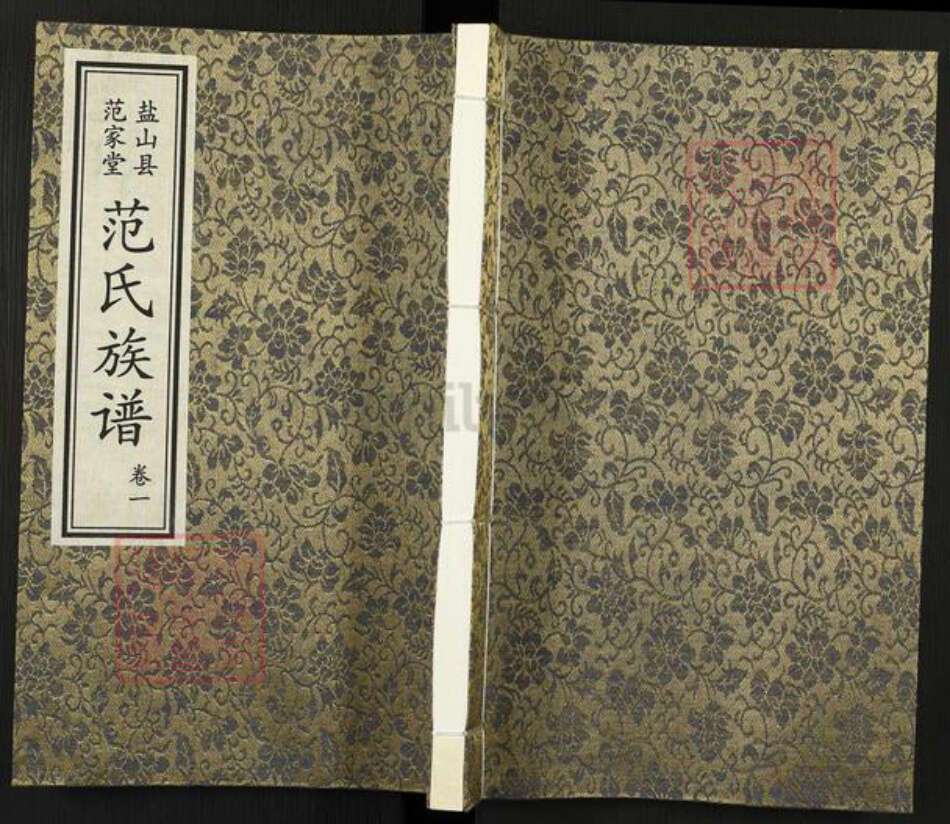 盐山县
范家堂
范氏族谱
卷一